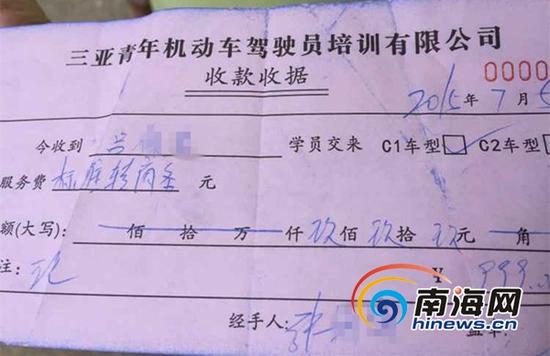 三亚青年机动车驾驶员培训有限公司
收款收据 0000
2015年7月5
今收到 学员交来 C1车型 C2车型
服务费 标准转商务 元
额(大写): 佰拾万仟玖佰玖拾玖元 角
注: ¥ 999.
经手人: 张
南海网
hinews.cn